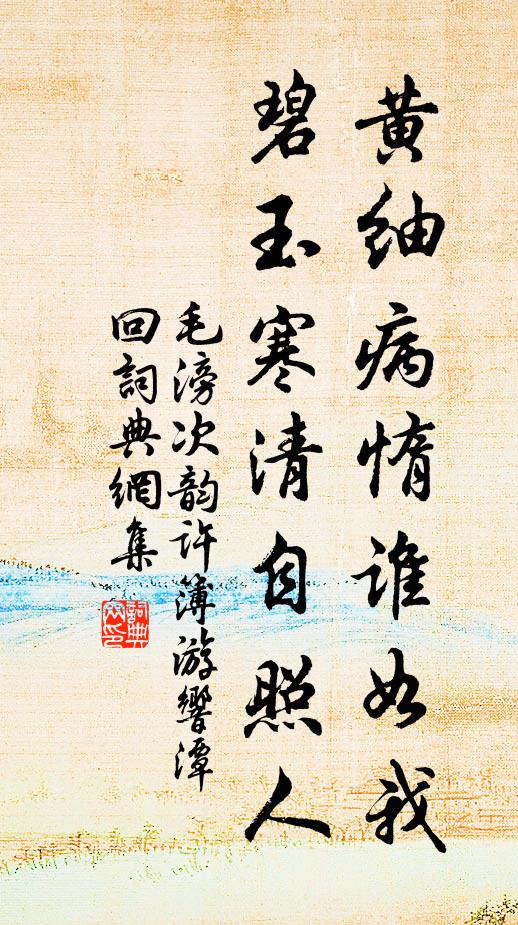 黄紬病惰谁如我
碧玉寒清自照人
毛滂次韵许簿游響潭
回詞典網集
詞典网印